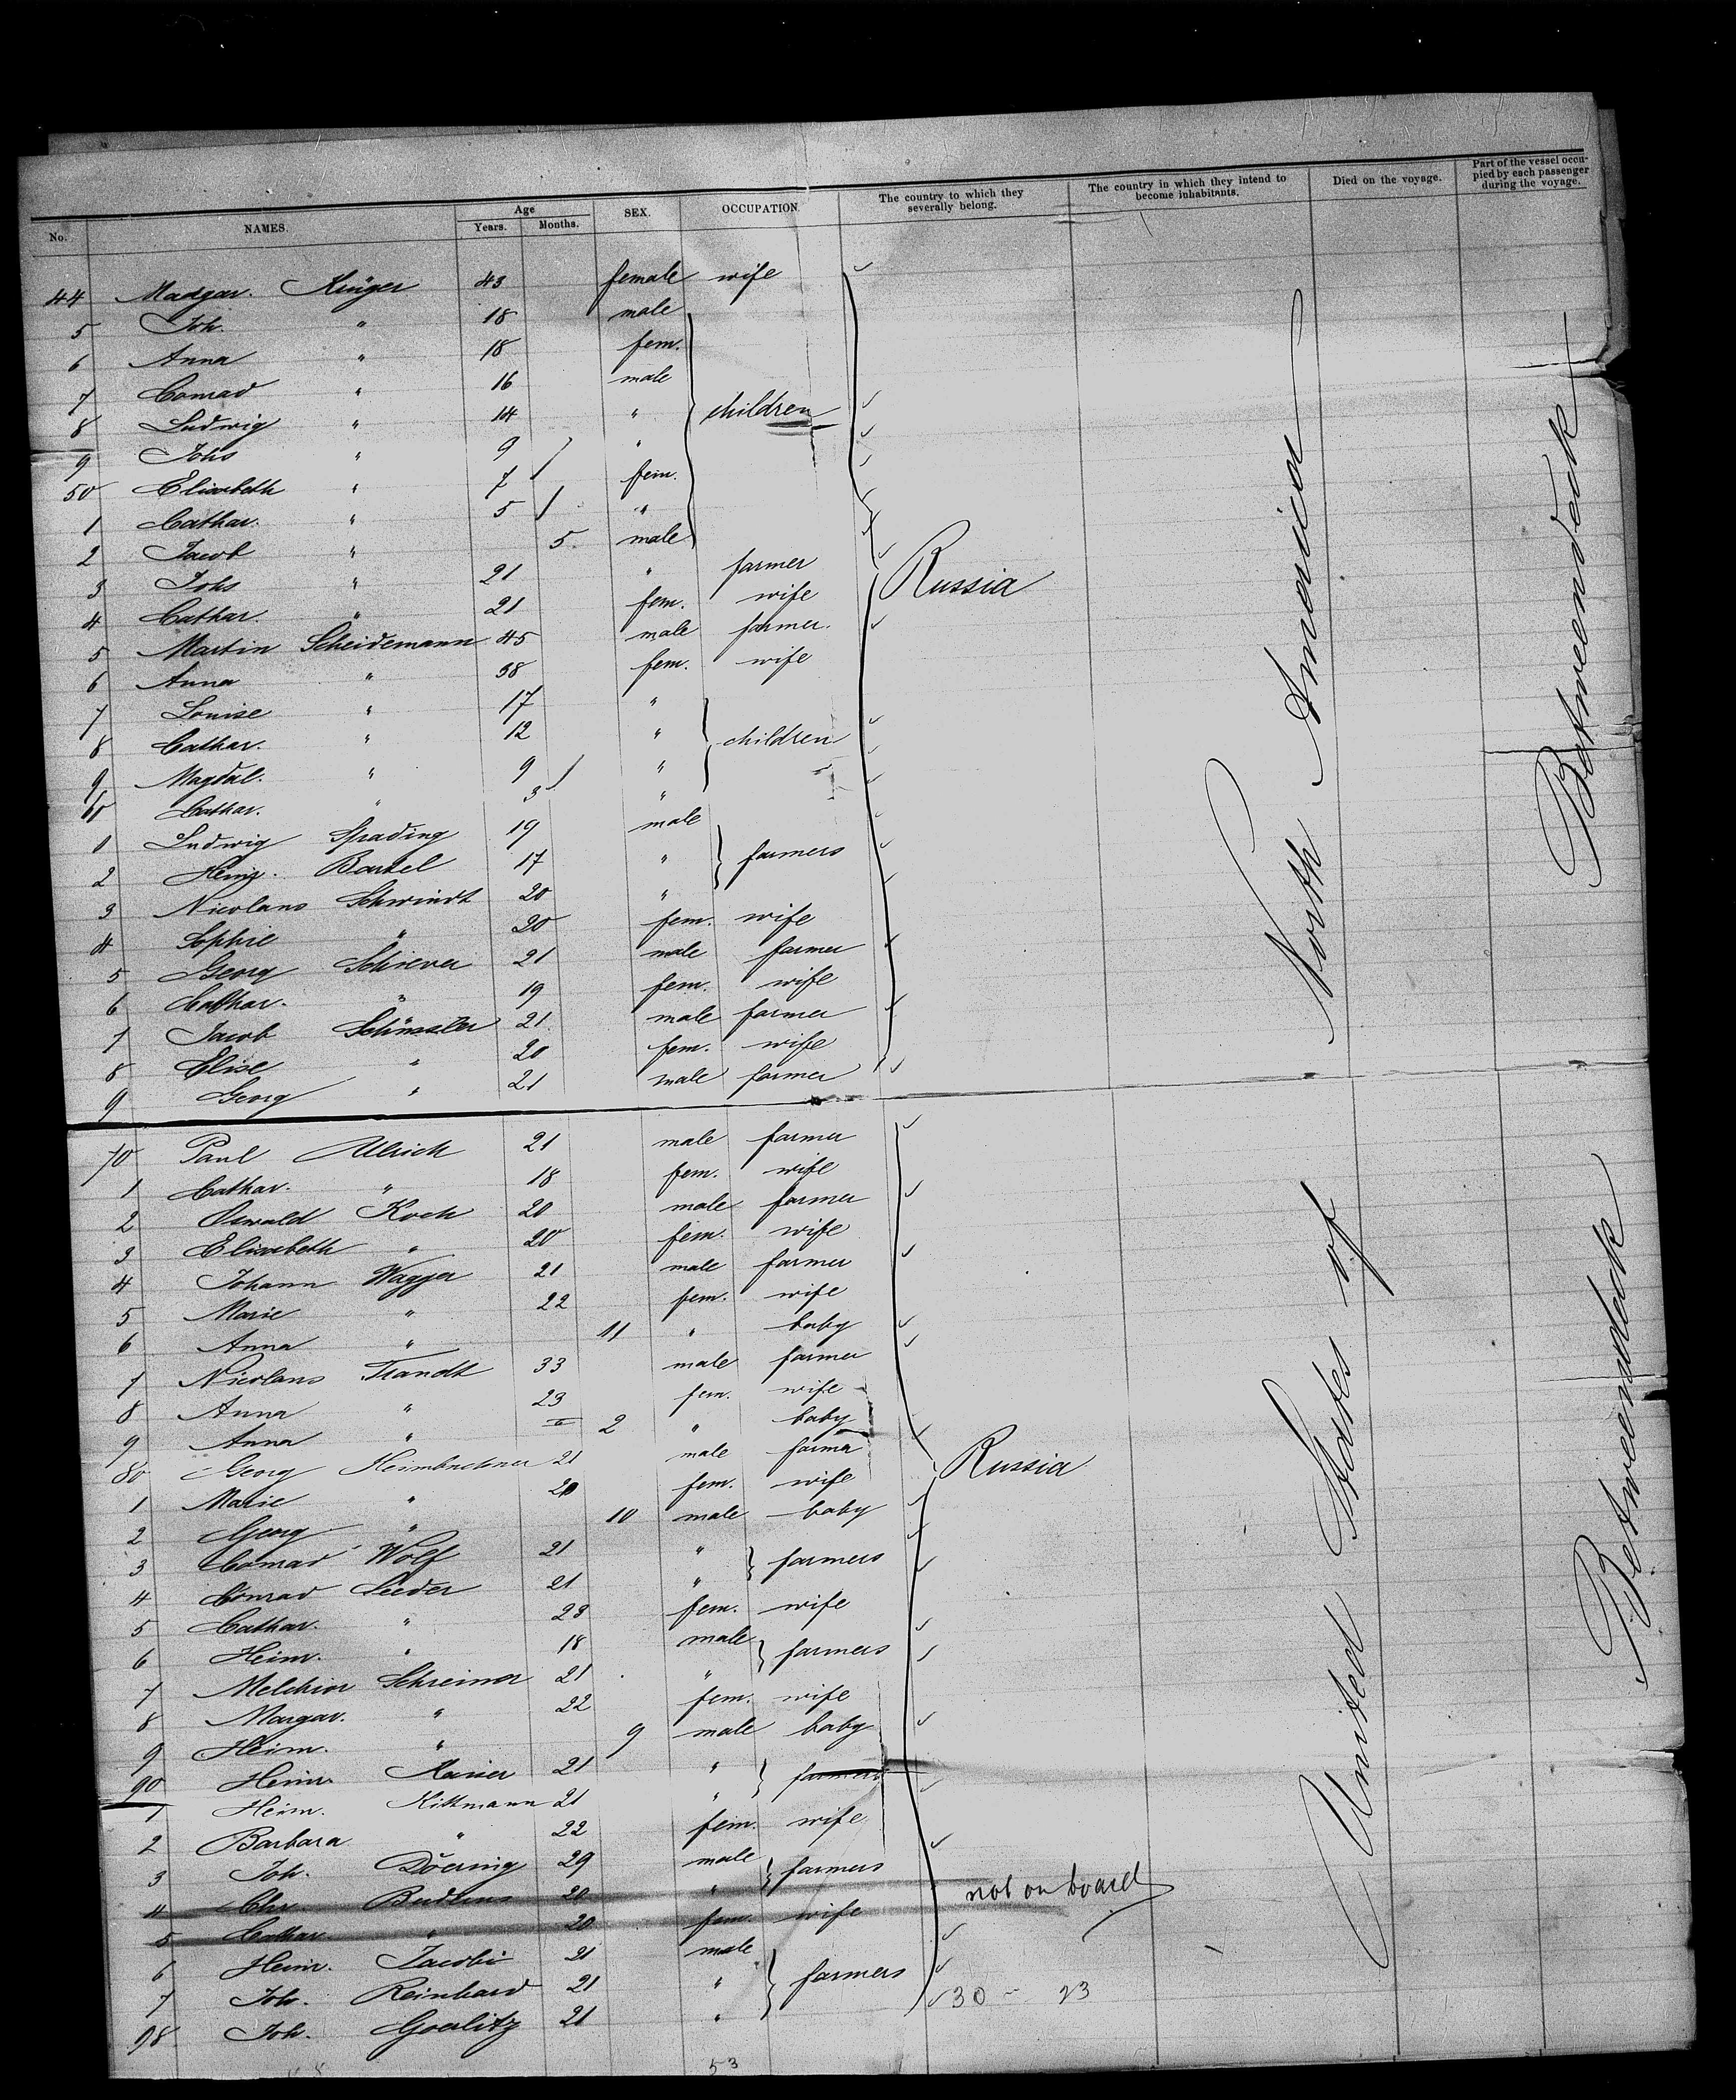 No. NAMES. Age Years. Months. SEX. OCCUPATION. The country to which they severally belong. The country in which they intend to become inhabitants. Died on the voyage. Part of the vessel occupied by each passenger during the voyage.
44 Madgar. Krüger 43 female wife
5 Joh. " 18 male
6 Anna " 18 fem.
7 Conrad " 16 male
8 Ludwig " 14 " children
9 Johs " 9 "
50 Elisabeth " 7 fem.
1 Cathar. " 5 "
2 Jacob " 5 male
3 Johs " 21 " farmer
Russia
4 Cathar. " 21 fem. wife
5 Martin Scheidemann 45 male farmer.
6 Anna " 38 fem. wife
7 Louise " 17 "
8 Cathar. " 12 " children
9 Magdal. " 9 "
60 Cathar. " 3 "
1 Ludwig Spading 19 male
2 Heinr. Bartel 17 " farmers
3 Nicolaus Schwindt 20 "
4 Sophie " 20 fem. wife
5 Georg Schiever 21 male farmer
6 Cathar. " 19 fem. wife
7 Jacob Schüssler 21 male farmer
8 Elise " 20 fem. wife
9 Georg " 21 male farmer
70 Paul Ulrich 21 male farmer
1 Cathar. " 18 fem. wife
2 Oswald Koch 20 male farmer
3 Elisabeth " 20 fem. wife
4 Johann Wagger 21 male farmer
5 Marie " 22 fem. wife
6 Anna " 11 " baby
7 Nicolaus Trandt 33 male farmer
8 Anna " 23 fem. wife
9 Anna " 2 " baby
80 Georg Heimbuchner 21 male farmer
Russia
1 Marie " 20 fem. wife
2 Georg " 10 male baby
3 Conrad Wolf 21 " farmers
4 Conrad Leeder 21 "
5 Cathar. " 23 fem. wife
6 Heinr. " 18 male farmers
7 Melchior Schreiner 21 "
8 Margar. " 22 fem. wife
9 Heinr. " 9 male baby
90 Heinr. 21 " farmers
1 Heinr. Kittmann 21 "
2 Barbara " 22 fem. wife
3 Joh. Döering 29 male farmers
4 Chr. 20 "
not on board
5 Cathar. " 20 fem. wife
6 Heinr. Jacobi 21 male
7 Joh. Reinhard 21 " farmers
98 Joh. Goerlitz 21 "
30 - 23
53
United States of North America
Betweendeck
Betweendeck